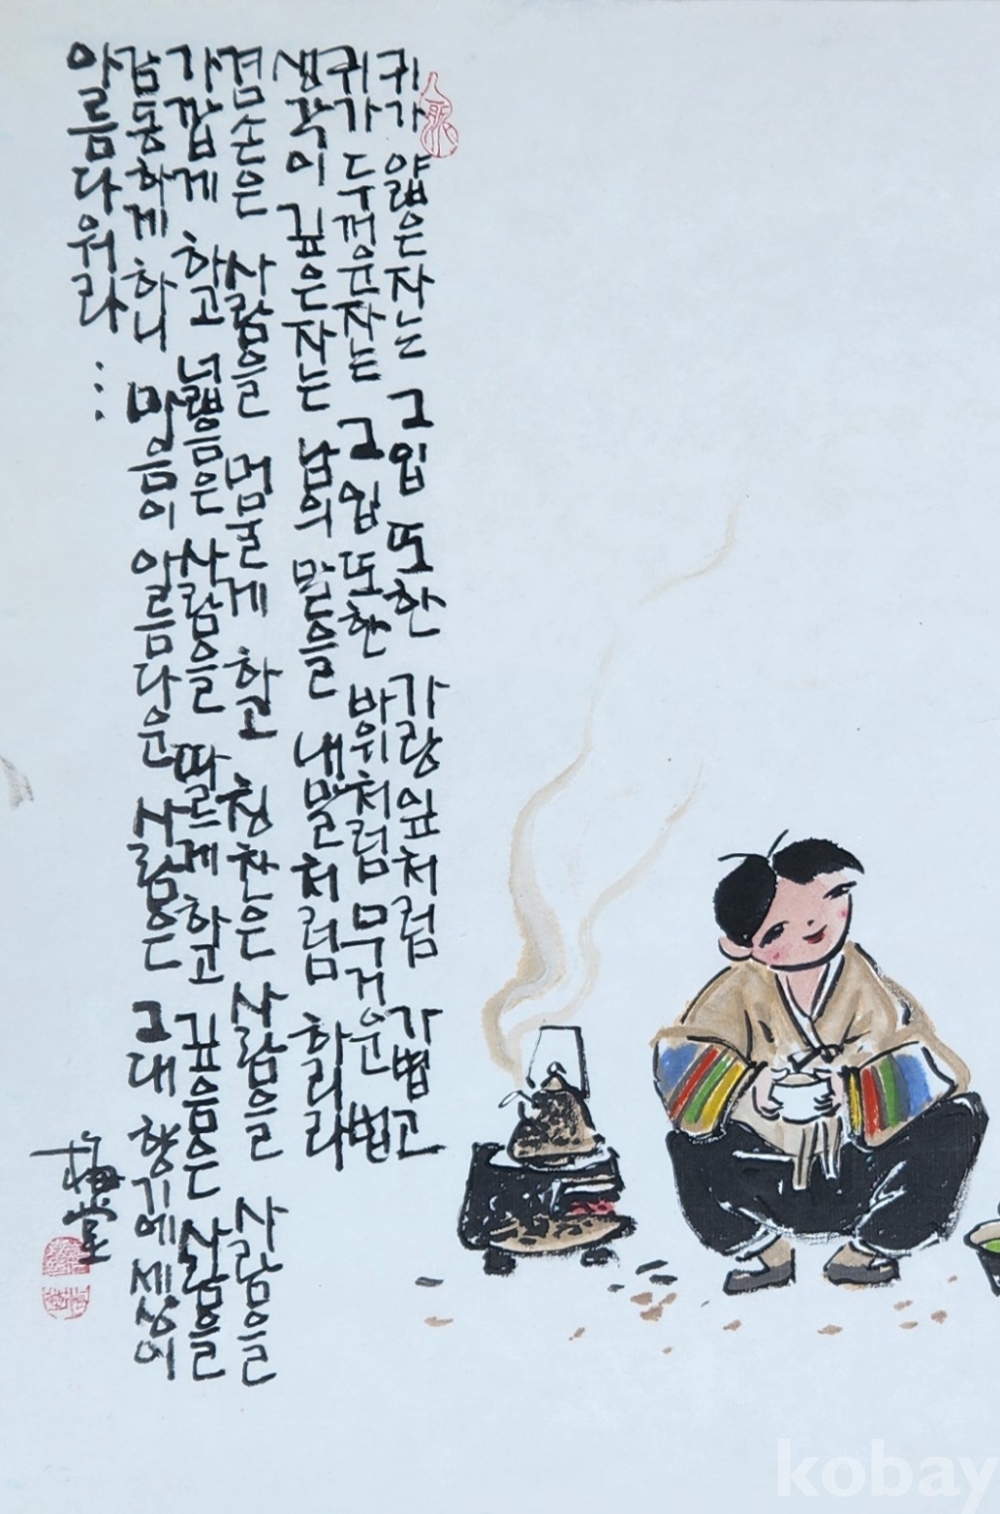 귀가 얇은자는 그입 또한 가랑잎처럼 가볍고
귀가 두꺼운자는 그입 또한 바위처럼 무거운 법
생각이 깊은자는 남의 말을 내말처럼 하리라
겸손은 사람을 머물게 하고 칭찬은 사람을 사람을
가깝게 하고 넓음은 사람을 따르게 하고 깊음은 사람을
감동하게 하니 마음이 아름다운 사람은 그대 향기에 세상이
아름다워라...
梅堂
kobay